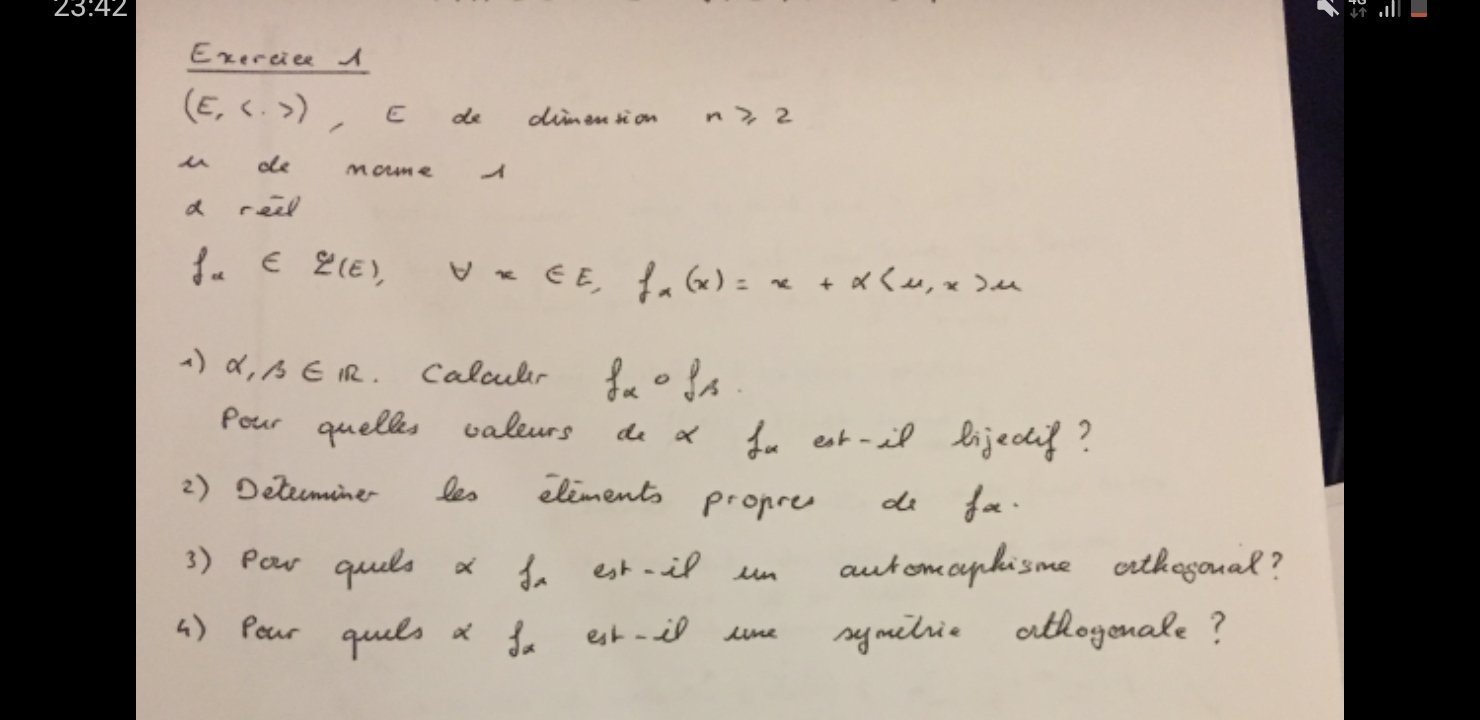 23:42
4G
Exercice 1
(E, <.>), E de dimension n ⩾ 2
u de norme 1
α réel
fα ∈ L(E), ∀ x ∈ E, fα(x) = x + α<u, x>u
1) α, β ∈ ℝ. Calculer fα ∘ fβ.
Pour quelles valeurs de α fα est-il bijectif ?
2) Déterminer les éléments propres de fα.
3) Pour quels α fα est-il un automorphisme orthogonal ?
4) Pour quels α fα est-il une symétrie orthogonale ?